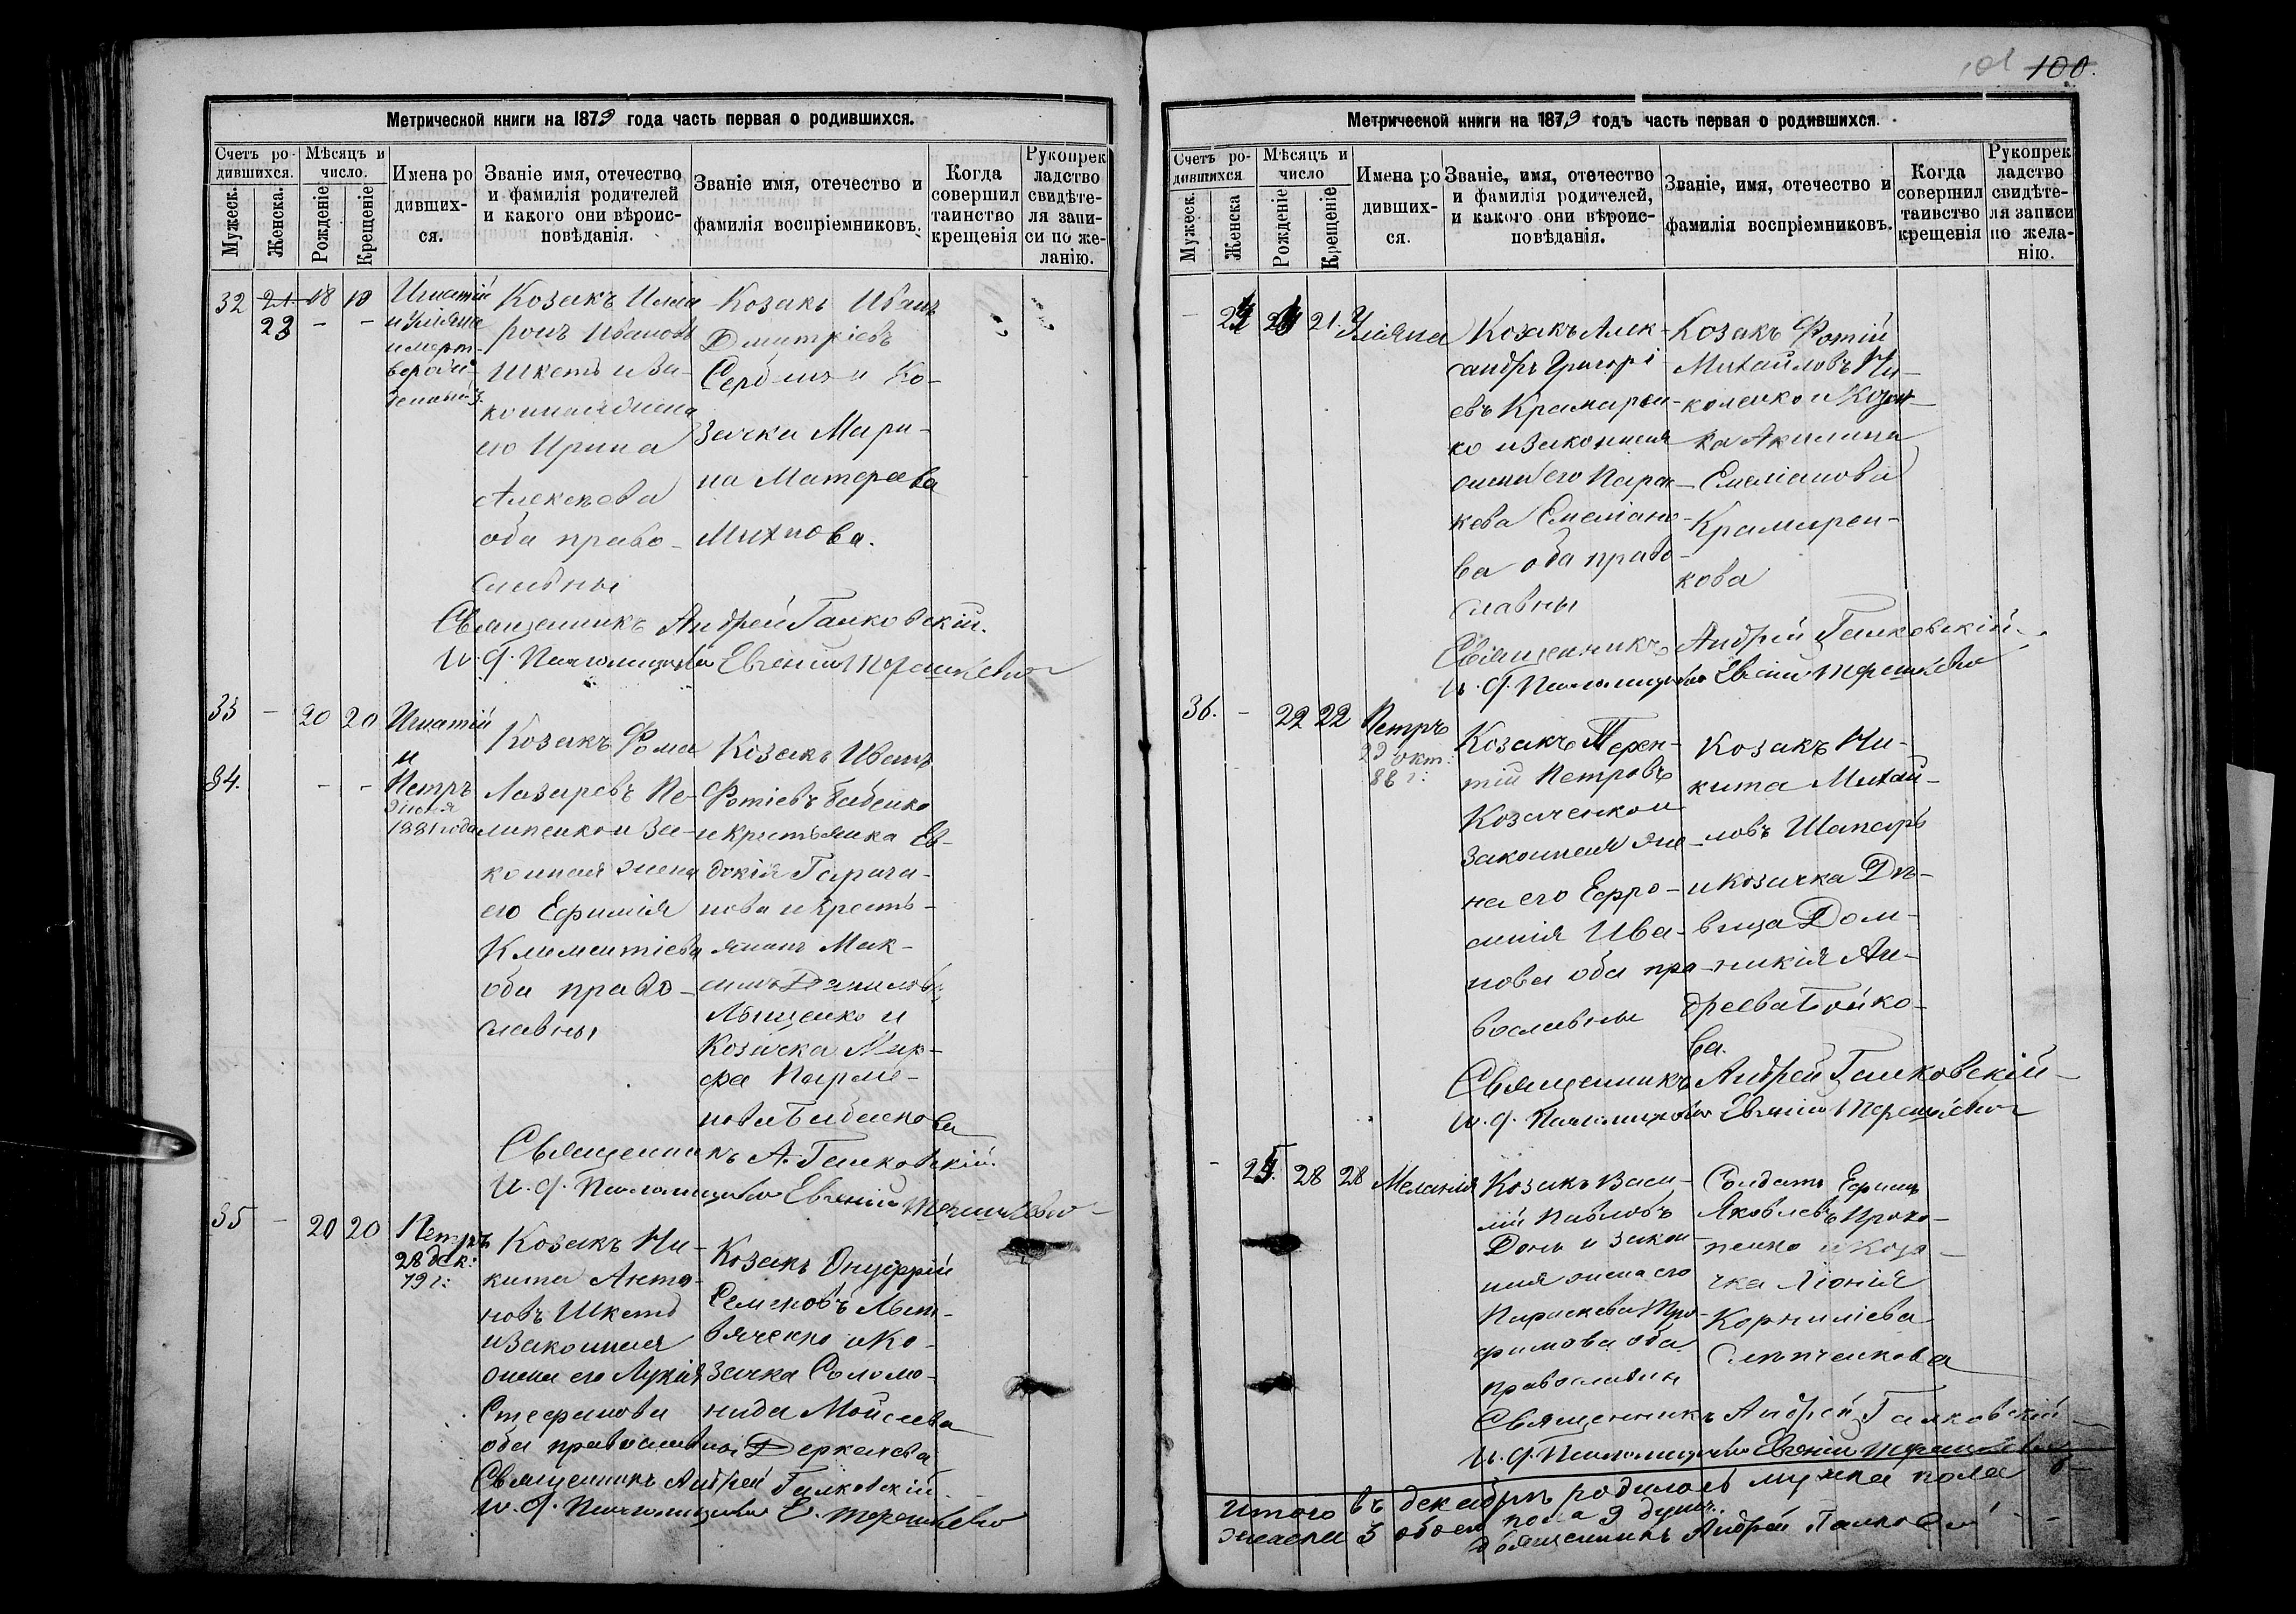 Метрической книги на 1879 года часть первая о родившихся.
Счетъ ро-
дившихся.
Мѣсяцъ и
число.
Мужеск.
Женска.
Рожденіе
Крещеніе
Имена ро
дивших-
ся.
Званіе имя, отечество
и фамилія родителей
и какого они вѣроис-
повѣданія.
Званіе имя, отечество и
фамилія воспріемниковъ.
Когда
совершил
таинство
крещенія
Рукопрек
ладство
свидѣте-
ля запи-
си по же-
ланію.
32
18
Игнатій
и Уліяна
Козакъ
Ивановъ
Шкетъ и за-
его Ирина
Алексѣева
оба право-
славны
Козакъ Иванъ
Дмитріевъ
и Ко-
зачка Мари-
на Матѳеева
Михнова.
Священникъ Андрей Галковскій.
33 - 20 20 Игнатій
и
34. - - Петръ
1881 года
Козакъ Фома
Лазаревъ Пе-
липенко и за-
конная жена
его Ефимія
Климентіева
оба право-
славны
Козакъ Иванъ
Фотіевъ Бабенко
и крестьянка Ев-
докія Гарага-
нова и крестъ-
янинъ Мак-
симъ Даниловъ
Лощенко и
Козачка Мар-
фа Парме-
нова Бабенкова
Священникъ А. Галковскій.
35 - 20 20 Петръ
28 дек:
79 г:
Козакъ Ни-
кита Анто-
новъ Шкетъ
и законная
жена его Лукія
Стефанова
оба православны
Козакъ Онуфрій
Семеновъ Лит-
вяченко и Ко-
зачка Соломо-
нида Мойсеева
Деркачева
Священникъ Андрей Галковскій.
100.
Метрической книги на 1879 годъ часть первая о родившихся.
Счетъ ро-
дившихся
Мѣсяцъ и
число
Мужеск.
Женска
Рожденіе
Крещеніе
Имена ро
дивших-
ся.
Званіе, имя, отечество
и фамилія родителей,
и какого они вѣроис-
повѣданія.
Званіе, имя, отечество и
фамилія воспріемниковъ.
Когда
совершил
таинство
крещенія
Рукопрек
ладство
свидѣте-
ля записи
по жела-
нію.
- 24 21. Уліяна
Козакъ Алек-
сандръ Григорі-
евъ Крамарен-
ко и законная
жена его Парас-
кева Емеліано-
ва оба право-
славны
Козакъ Фотій
Михайловъ Ни-
коленко и Козач-
ка Акилина
Емеліанова
Крамарен-
кова
Священникъ Андрей Галковскій.
36. - 22 22 Петръ
окт:
88 г:
Козакъ Терен-
тій Петровъ
Козаченко и
законная же-
на его Ефро-
синія Ива-
нова оба пра-
вославны
Козакъ Ни-
кита Михай-
ловъ Шапаръ
и козачка Дѣ-
вица Дом-
никія Ан-
дреева Бойко-
ва.
Священникъ Андрей Галковскій
- 25. 28 28 Меланія
Козакъ Васи-
лій Павловъ
Донь и закон-
ная жена его
Параскева Тро-
фимова оба
православны
Солдатъ Ефимъ
Яковлевъ Проко-
пенко и Коза-
чка
Корниліева
Слѣпченкова
Священникъ Андрей Галковскій
Итого въ декабрѣ родилось мужска пола 6
женска 3 обоего пола 9 душъ.
Священникъ Андрей Галковскій